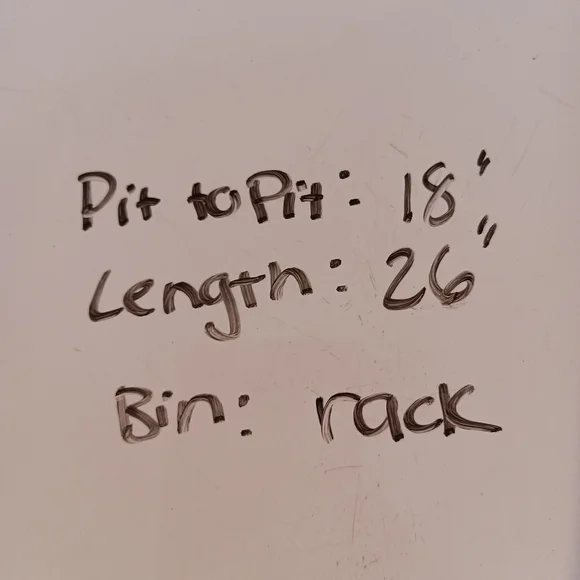 Pit to Pit: 18"
Length: 26"
Bin: rack